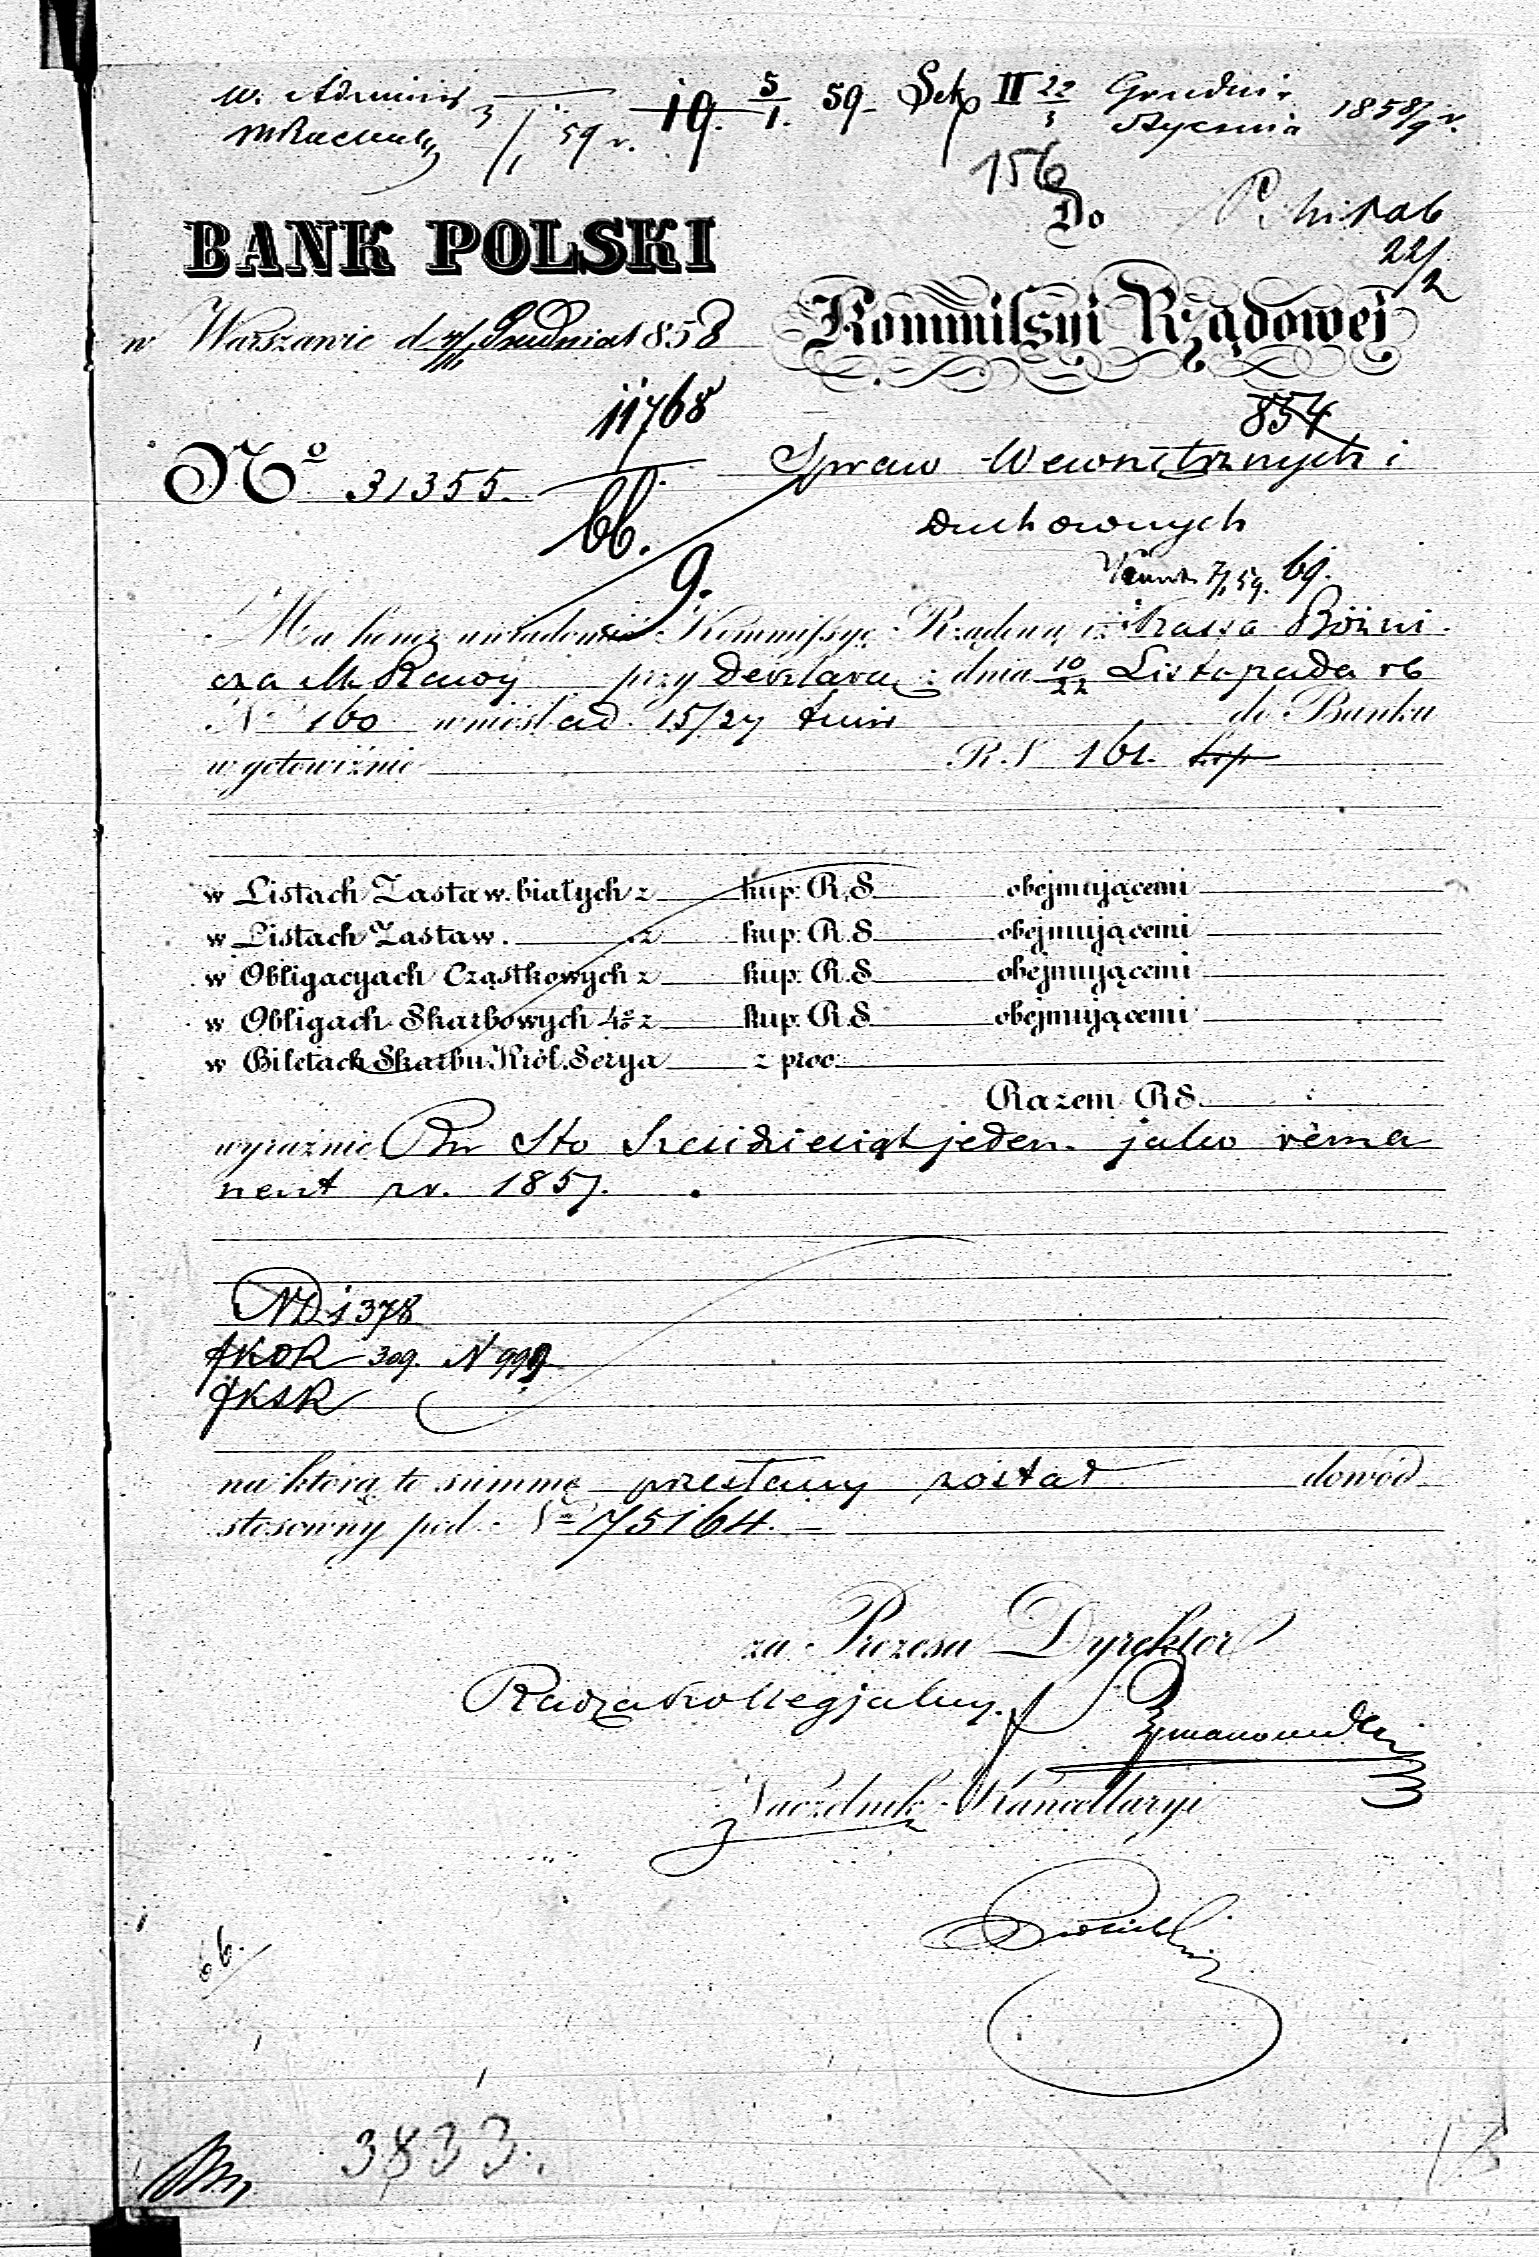 W. Administ 3/1 59 r. 19. 5/1. 59 Sek II 22/3 Grudnia 1858/9 r.
Stycznia
156
Do
22/2
BANK POLSKI
w Warszawie d Grudnia 1858
Kommissyi Rządowej
11768
854
No 31355.
Spraw Wewnętrznych i
Duchownych
66.
9.
7/1 59. 69.
Ma honor uwiadomić Kommissyę Rządową iż Kassa Bóżni
cza M. Rawy przy Deklara: dnia 10/22 Listopada rb
No 160 wniosła d. 15/27 t.m.r do Banku
w gotowiźnie R.S 161.
w Listach Zastaw. białych z kup. R.S obejmującemi
w Listach Zastaw. z kup. R.S obejmującemi
w Obligacyach Cząstkowych z kup. R.S obejmującemi
w Obligach Skarbowych 4% z kup. R.S obejmującemi
w Biletach Skarbu Król. Serya z proc:
Razem RS.
wyraźnie Rs Sto Sześćdziesiąt jeden. jako rema
nent z r. 1857.
ND 1378
KOR 309. N 999
KSR
na którą to summę przesłany został dowód
stosowny pod No 75164.
za Prezesa Dyrektor
Radza Kollegjalny.
Naczelnik Kancellaryi
66.
3833.
13